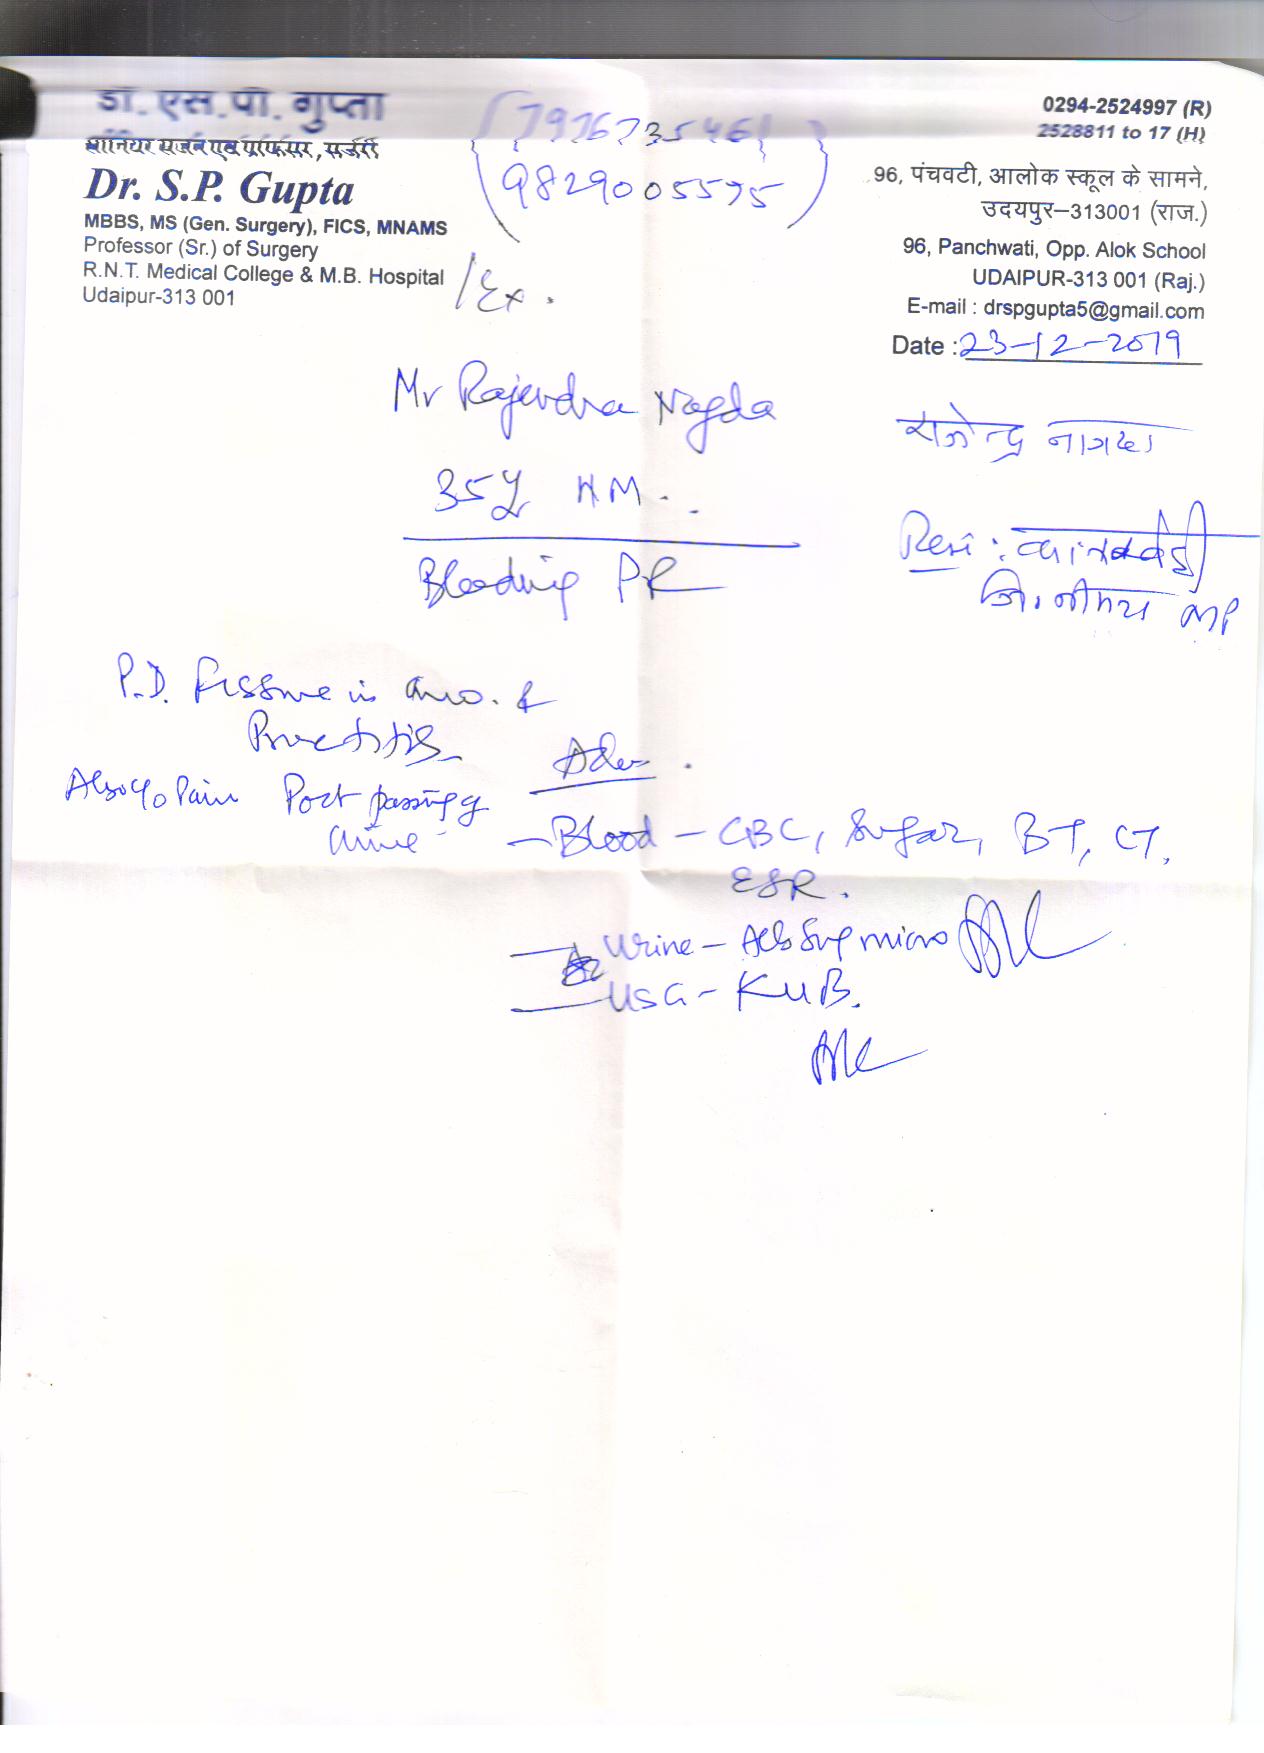 डॉ. एस.पी. गुप्ता
सीनियर सर्जन एवं प्रोफेसर, सर्जरी
Dr. S.P. Gupta
MBBS, MS (Gen. Surgery), FICS, MNAMS
Professor (Sr.) of Surgery
R.N.T. Medical College & M.B. Hospital
Udaipur-313 001
9829005575
/Ex.
0294-2524997 (R)
2528811 to 17 (H)
96, पंचवटी, आलोक स्कूल के सामने,
उदयपुर–313001 (राज.)
96, Panchwati, Opp. Alok School
UDAIPUR-313 001 (Raj.)
E-mail : drspgupta5@gmail.com
Date : 23-12-2019
Mr Rajendra Nagda
राजेन्द्र नागदा
35y HM.
Resi :
Bleeding PR
जि. नीमच MP
P.D. Fissure in ano. &
Proctitis
Adv.
Also c/o Pain Post passing
urine
– Blood – CBC, Sugar, BT, CT,
ESR.
Urine – Alb Sug micro
USG – KUB.